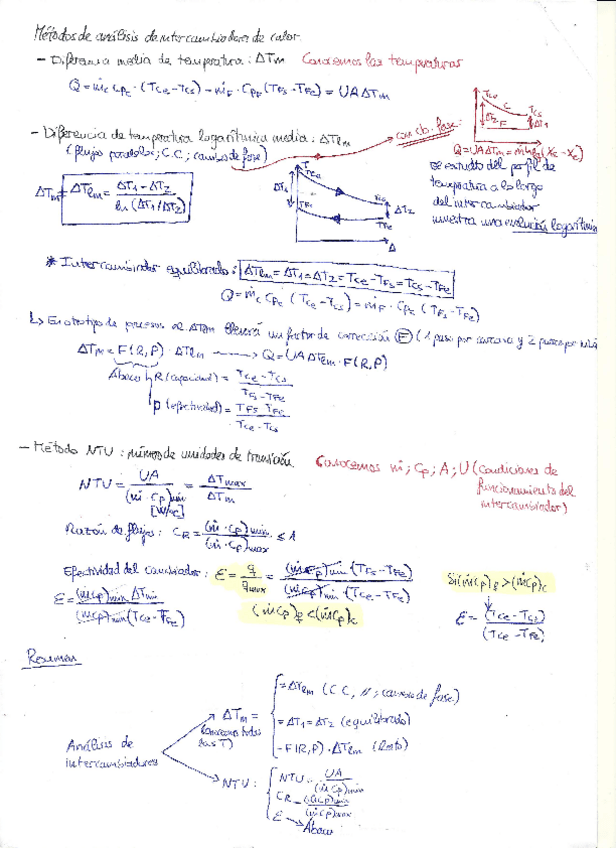 Métodos de análisis de intercambiadores de calor
- Diferencia media de temperatura: ΔTm Conocemos las temperaturas
Q = ṁc Cpc · (Tce - Tcs) = ṁF · CpF (TFs - TFe) = UA ΔTm
- Diferencia de temperatura logarítmica media: ΔTlm
(flujos paralelos; C.C; cambios de fase)
con cb. fase:
Tce
C
Tcs
ΔT2
F
ΔT1
Q = UA ΔTm =
ΔTm = ΔTlm = ΔT1 - ΔT2 / ln (ΔT1/ΔT2)
T
Tce
ΔT1
ΔT2
TFe
A
El estudio del perfil de
temperatura a lo largo
del intercambiador
muestra una evolución logarítmica
* Intercambiador equilibrado: ΔTlm = ΔT1 = ΔT2 = Tce - TFs = Tcs - TFe
Q = ṁc Cpc (Tce - Tcs) = ṁF · CpF (TFs - TFe)
↳ En otro tipo de procesos el ΔTm llevará un factor de corrección F (1 paso por carcasa y 2 pasos por tubo
ΔTm = F(R,P) · ΔTlm → Q = UA ΔTlm · F(R,P)
Ábaco R (capacidad) = Tce - Tcs / TFs - TFe
P (efectividad) = TFs - TFe / Tce - Tcs
- Método NTU: número de unidades de transición. Conocemos ṁ; Cp; A; U (condiciones de
funcionamiento del
intercambiador)
NTU = UA / (ṁ · Cp)min = ΔTmax / ΔTm
[W/ºC]
Razón de flujos: CR = (ṁ · Cp)min / (ṁ · Cp)max ≤ 1
Efectividad del cambiador: ε = q / qmax = (ṁCp)min (TFs - TFe) / (ṁCp)min (Tce - TFe)
(ṁCp)F < (ṁCp)c
Si (ṁCp)F > (ṁCp)c
ε = (Tce - Tcs) / (Tce - TFe)
ε = (ṁCp)min ΔTmin / (ṁCp)min (Tce - TFe)
Resumen
Análisis de
intercambiadores
ΔTm =
(conocemos todas
las T)
= ΔTlm (CC, //, cambio de fase)
= ΔT1 = ΔT2 (equilibrado)
- F(R,P) · ΔTlm (Resto)
NTU:
NTU = UA / (ṁCp)min
CR = (ṁCp)min / (ṁCp)max
ε → Ábaco